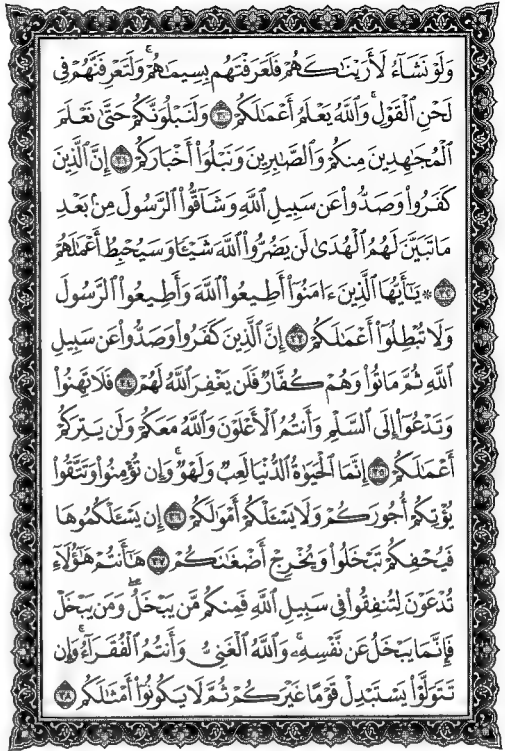 وَلَوْ نَشَآءُ لَأَرَيْنَـٰكَهُمْ فَلَعَرَفْتَهُم بِسِيمَـٰهُمْ ۚ وَلَتَعْرِفَنَّهُمْ فِى
لَحْنِ ٱلْقَوْلِ ۚ وَٱللَّهُ يَعْلَمُ أَعْمَـٰلَكُمْ ٣٠ وَلَنَبْلُوَنَّكُمْ حَتَّىٰ نَعْلَمَ
ٱلْمُجَـٰهِدِينَ مِنكُمْ وَٱلصَّـٰبِرِينَ وَنَبْلُوَا۟ أَخْبَارَكُمْ ٣١ إِنَّ ٱلَّذِينَ
كَفَرُوا۟ وَصَدُّوا۟ عَن سَبِيلِ ٱللَّهِ وَشَآقُّوا۟ ٱلرَّسُولَ مِنۢ بَعْدِ
مَا تَبَيَّنَ لَهُمُ ٱلْهُدَىٰ لَن يَضُرُّوا۟ ٱللَّهَ شَيْـًٔا وَسَيُحْبِطُ أَعْمَـٰلَهُمْ
٣٢ * يَـٰٓأَيُّهَا ٱلَّذِينَ ءَامَنُوٓا۟ أَطِيعُوا۟ ٱللَّهَ وَأَطِيعُوا۟ ٱلرَّسُولَ
وَلَا تُبْطِلُوٓا۟ أَعْمَـٰلَكُمْ ٣٣ إِنَّ ٱلَّذِينَ كَفَرُوا۟ وَصَدُّوا۟ عَن سَبِيلِ
ٱللَّهِ ثُمَّ مَاتُوا۟ وَهُمْ كُفَّارٌ فَلَن يَغْفِرَ ٱللَّهُ لَهُمْ ٣٤ فَلَا تَهِنُوا۟
وَتَدْعُوٓا۟ إِلَى ٱلسَّلْمِ وَأَنتُمُ ٱلْأَعْلَوْنَ وَٱللَّهُ مَعَكُمْ وَلَن يَتِرَكُمْ
أَعْمَـٰلَكُمْ ٣٥ إِنَّمَا ٱلْحَيَوٰةُ ٱلدُّنْيَا لَعِبٌ وَلَهْوٌ ۚ وَإِن تُؤْمِنُوا۟ وَتَتَّقُوا۟
يُؤْتِكُمْ أُجُورَكُمْ وَلَا يَسْـَٔلْكُمْ أَمْوَٰلَكُمْ ٣٦ إِن يَسْـَٔلْكُمُوهَا
فَيُحْفِكُمْ تَبْخَلُوا۟ وَيُخْرِجْ أَضْغَـٰنَكُمْ ٣٧ هَـٰٓأَنتُمْ هَـٰٓؤُلَآءِ
تُدْعَوْنَ لِتُنفِقُوا۟ فِى سَبِيلِ ٱللَّهِ فَمِنكُم مَّن يَبْخَلُ ۖ وَمَن يَبْخَلْ
فَإِنَّمَا يَبْخَلُ عَن نَّفْسِهِۦ ۚ وَٱللَّهُ ٱلْغَنِىُّ وَأَنتُمُ ٱلْفُقَرَآءُ ۚ وَإِن
تَتَوَلَّوْا۟ يَسْتَبْدِلْ قَوْمًا غَيْرَكُمْ ثُمَّ لَا يَكُونُوٓا۟ أَمْثَـٰلَكُم ٣٨